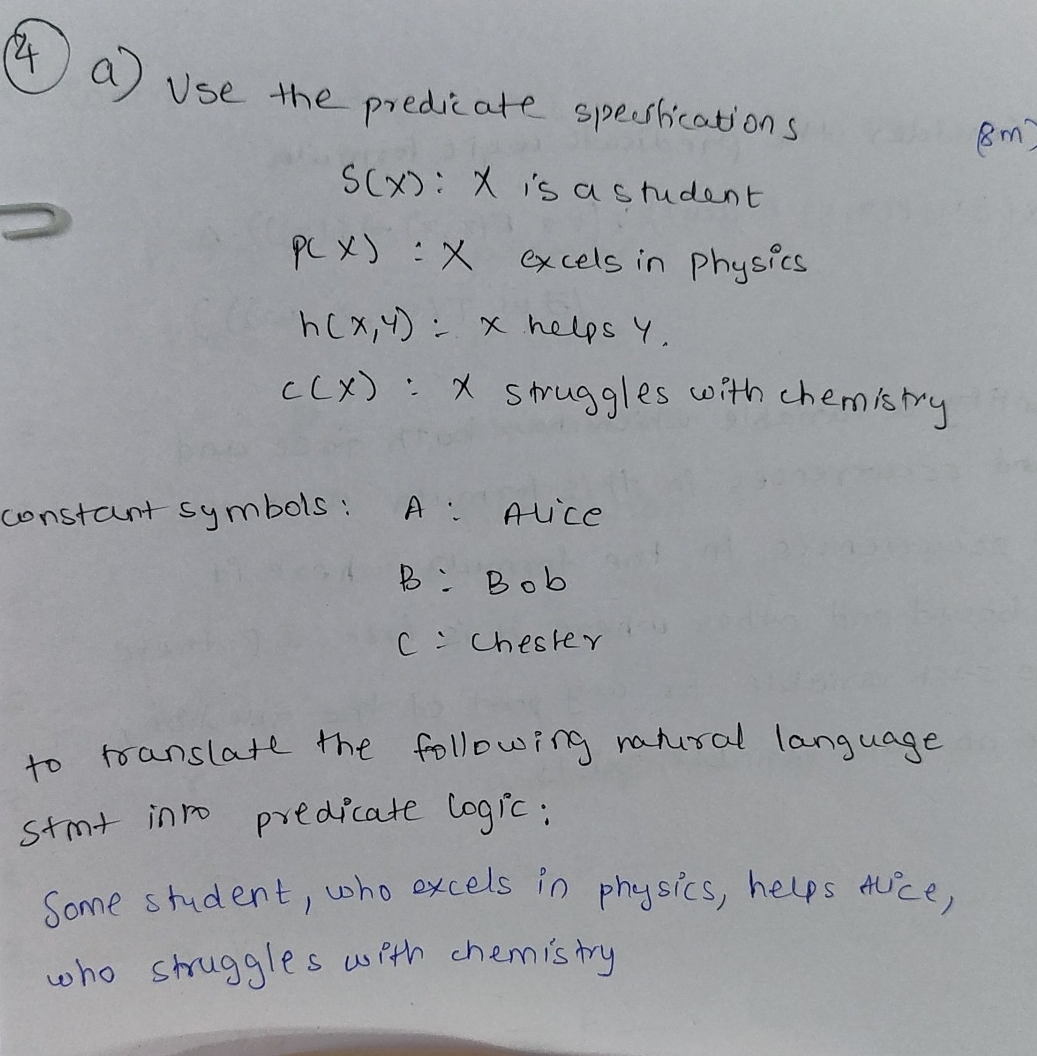 4 a) Use the predicate specifications (8m)
S(X): X is a student
P(X) : X excels in physics
h(X,Y) : x helps Y.
C(X) : X struggles with chemistry
constant symbols: A : Alice
B : Bob
C : Chester
to translate the following natural language
stmt into predicate logic:
Some student, who excels in physics, helps Alice,
who struggles with chemistry